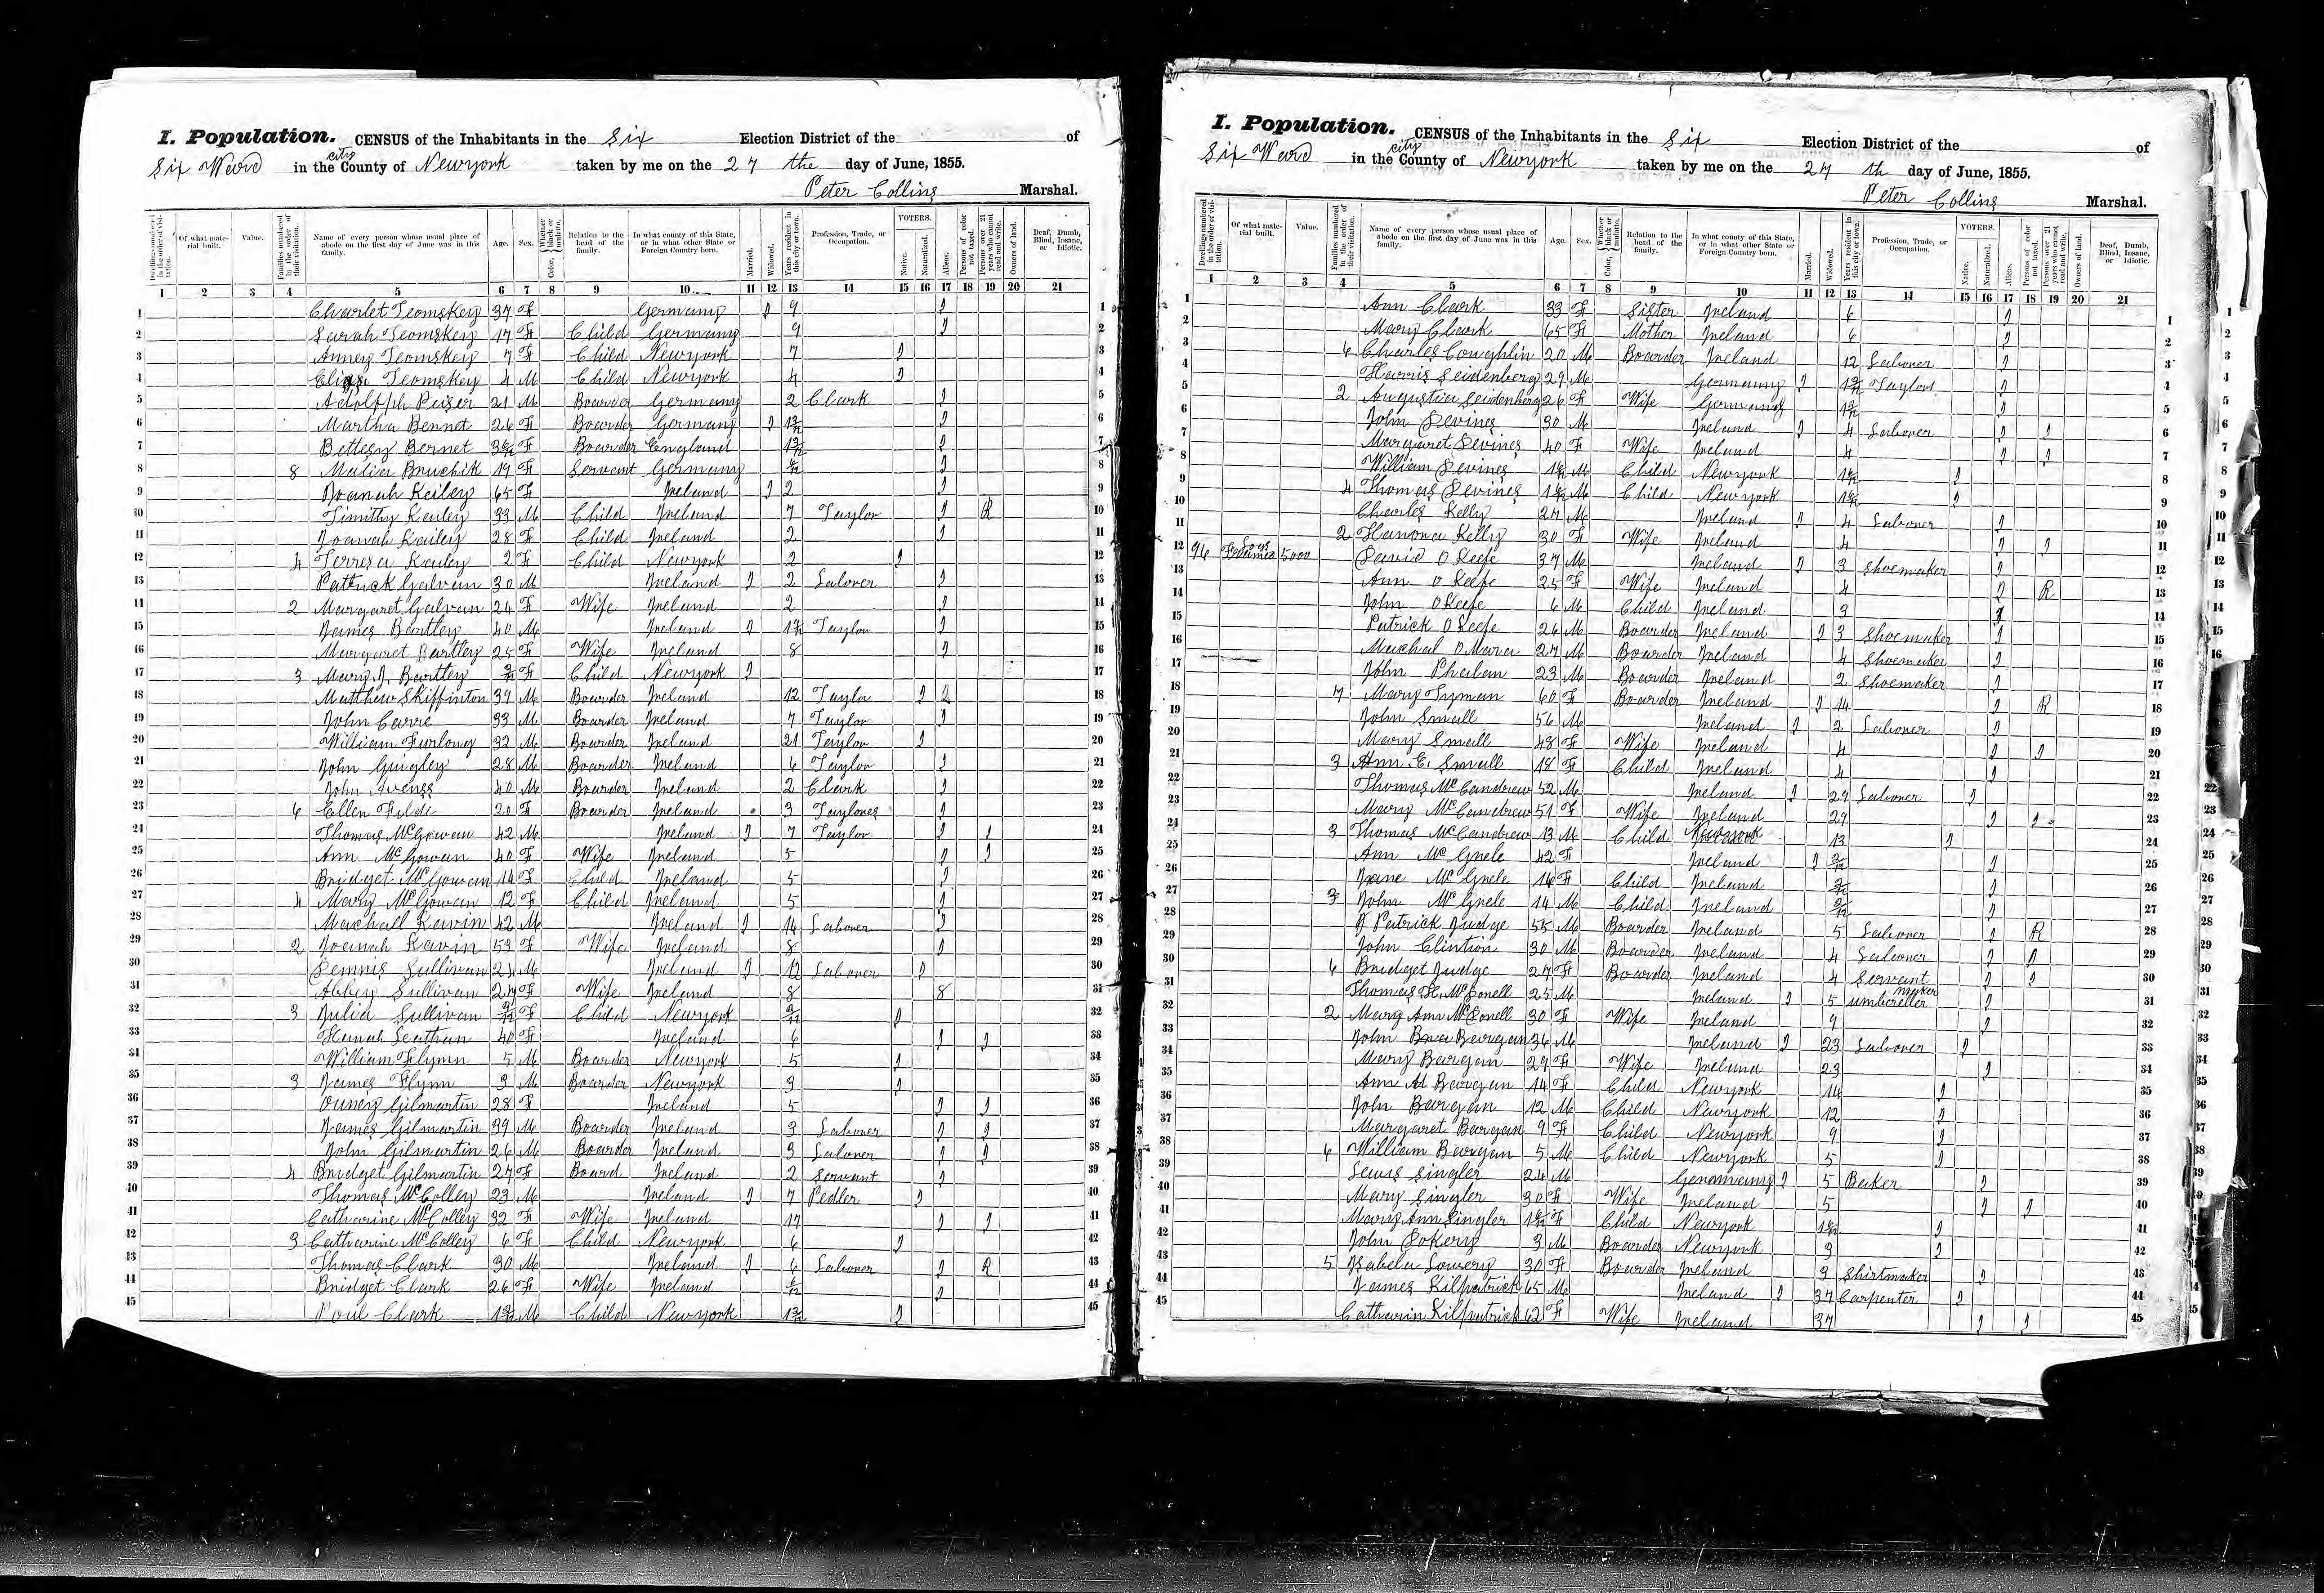 I. Population. CENSUS of the Inhabitants in the Six Election District of the of
Six Ward in the city County of Newyork taken by me on the 27 the day of June, 1855.
Peter Collins Marshal.
Dwellings numbered in the order of visitation. Of what material built. Value. Families numbered in the order of their visitation. Name of every person whose usual place of abode on the first day of June was in this family. Age. Sex. Color, Whether black or mulatto. Relation to the head of the family. In what county of this State, or in what other State or Foreign Country born. Married. Widowed. Years resident in this city or town. Profession, Trade, or Occupation. VOTERS. Native. Naturalized. Aliens. Persons of color not taxed. Persons over 21 years who cannot read and write. Owners of land. Deaf, Dumb, Blind, Insane, or Idiotic.
1 2 3 4 5 6 7 8 9 10 11 12 13 14 15 16 17 18 19 20 21
1 Charlet Tomskey 37 F Germany 1 9 1 1
2 Sarah Tomskey 17 F Child Germany 9 1 2
3 Anney Tomskey 7 F Child Newyork 7 1 3
4 Tomskey 4 M Child Newyork 4 1 4
5 Adolfph Peiser 21 M Boarder Germany 2 Clark 1 5
6 Martha Bennet 26 F Boarder Germany 1 1 6
7 Bettesy Bernet F Boarder England 1 7
8 8 Malia Bruchik 19 F Servant Germany 1 8
9 Joanah Keiley 65 F Ireland 1 2 1 9
10 Timithy Keiley 33 M Child Ireland 7 Taylor 1 R 10
11 Joanah Keiley 28 F Child Ireland 2 1 11
12 4 Terresa Keiley 2 F Child Newyork 2 1 12
13 Pattrick Galvan 30 M Ireland 1 2 Laborer 1 13
14 2 Margaret Galvan 24 F Wife Ireland 2 1 14
15 James Bartley 40 M Ireland 1 Taylor 1 15
16 Margaret Bartley 25 F Wife Ireland 8 1 16
17 3 Mary J. Bartley F Child Newyork 1 17
18 Matthew Skiffinton 39 M Boarder Ireland 12 Taylor 1 18
19 John Carre 33 M Boarder Ireland 7 Taylor 1 19
20 William Furlong 32 M Boarder Ireland 21 Taylor 1 20
21 John Guigley 28 M Boarder Ireland 6 Taylor 1 21
22 John 40 M Boarder Ireland 2 Clark 1 22
23 6 Ellen Filde 20 F Boarder Ireland 3 Taylores 1 23
24 Thomas McGowan 42 M Ireland 1 7 Taylor 1 1 24
25 Ann McGowan 40 F Wife Ireland 5 1 1 25
26 Bridget McGowan 14 F Child Ireland 5 1 26
27 4 Mary McGowan 12 F Child Ireland 5 1 27
28 Machall Kavin 42 M Ireland 1 14 Laborer 1 28
29 2 Joanah Kavin 53 F Wife Ireland 8 1 29
30 Dennis Sullivan 24 M Ireland 1 12 Laborer 1 30
31 Abbey Sullivan F Wife Ireland 8 8 31
32 3 Julia Sullivan F Child Newyork 1 32
33 Hanah Leathan 40 F Ireland 6 1 1 33
34 William Flynn 5 M Boarder Newyork 5 1 34
35 3 James Flynn 3 M Boarder Newyork 3 1 35
36 Gilmartin 28 F Ireland 5 1 1 36
37 James Gilmartin 39 M Boarder Ireland 3 Laborer 1 1 37
38 John Gilmartin 26 M Boarder Ireland 3 Laborer 1 1 38
39 4 Bridget Gilmartin 27 F Board Ireland 2 Servant 1 39
40 Thomas McColley 23 M Ireland 1 7 Pedler 1 40
41 Catharine McColley 32 F Wife Ireland 17 1 1 41
42 3 Catharine McColley 6 F Child Newyork 6 1 42
43 Thomas Clark 30 M Ireland 1 6 Laborer 1 R 43
44 Bridget Clark 26 F Wife Ireland 1 44
45 Poul Clark M Child Newyork 1 45
I. Population. CENSUS of the Inhabitants in the Six Election District of the of
Six Ward in the city County of Newyork taken by me on the 27 th day of June, 1855.
Peter Collins Marshal.
Dwellings numbered in the order of visitation. Of what material built. Value. Families numbered in the order of their visitation. Name of every person whose usual place of abode on the first day of June was in this family. Age. Sex. Color, Whether black or mulatto. Relation to the head of the family. In what county of this State, or in what other State or Foreign Country born. Married. Widowed. Years resident in this city or town. Profession, Trade, or Occupation. VOTERS. Native. Naturalized. Aliens. Persons of color not taxed. Persons over 21 years who cannot read and write. Owners of land. Deaf, Dumb, Blind, Insane, or Idiotic.
1 2 3 4 5 6 7 8 9 10 11 12 13 14 15 16 17 18 19 20 21
1 Ann Clark 33 F Sister Ireland 6 1 1
2 Mary Clark 65 F Mother Ireland 6 1 2
3 6 Charles Coughlin 20 M Boarder Ireland 12 Laborer 1 3
4 Harris Seidenberg 29 M Germany 1 Taylor 1 4
5 2 Augustia Seidenberg 26 F Wife Germany 1 5
6 John Devines 30 M Ireland 1 4 Laborer 1 1 6
7 Margaret Devines 40 F Wife Ireland 4 1 1 7
8 William Devines M Child Newyork 1 8
9 4 Thomas Devines M Child Newyork 1 9
10 Charles Kelly 27 M Ireland 1 4 Laborer 1 10
11 2 Hanona Kelly 30 F Wife Ireland 4 1 1 11
12 96 5000 David O Keefe 37 M Ireland 1 3 Shoemaker 1 12
13 Ann O Keefe 25 F Wife Ireland 4 1 R 13
14 John OKeefe 6 M Child Ireland 3 1 14
15 Patrick OKeefe 26 M Boarder Ireland 1 3 Shoemaker 1 15
16 Machal OMara 27 M Boarder Ireland 4 Shoemaker 1 16
17 John Phealan 23 M Boarder Ireland 2 Shoemaker 1 17
18 7 Mary Lyman 60 F Boarder Ireland 1 14 1 R 18
19 John Small 56 M Ireland 1 2 Laborer 1 19
20 Mary Small 48 F Wife Ireland 4 1 1 20
21 3 Ann E. Small 18 F Child Ireland 4 1 21
22 Thomas McCandrew 52 M Ireland 1 29 Laborer 1 22
23 Mary McCandrew 51 F Wife Ireland 29 1 1 23
24 3 Thomas McCandrew 13 M Child Newyork 13 1 24
25 Ann McGnele 42 F Ireland 1 1 25
26 Jane McGnele 16 F Child Ireland 1 26
27 3 John McGnele 14 M Child Ireland 1 27
28 Patrick Judge 55 M Boarder Ireland 5 Laborer 1 R 28
29 John Clintion 30 M Boarder Ireland 4 Laborer 1 1 29
30 6 Bridget Judge 27 F Boarder Ireland 4 Servant 1 1 30
31 Thomas H. McDonell 25 M Ireland 1 5 umbereller maker 1 31
32 2 Mary Ann McDonell 30 F Wife Ireland 9 1 32
33 John Bargan 36 M Ireland 1 23 Laborer 1 33
34 Mary Bargan 29 F Wife Ireland 23 1 34
35 Ann M Bargan 14 F Child Newyork 14 1 35
36 John Bargan 12 M Child Newyork 12 1 36
37 Margaret Bargan 9 F Child Newyork 9 1 37
38 6 William Bargan 5 M Child Newyork 5 1 38
39 Lewis Singler 24 M Genamany 1 5 Baker 1 39
40 Mary Singler 30 F Wife Ireland 5 1 1 40
41 Mary Ann Singler F Child Newyork 1 41
42 John Dokery 3 M Boarder Newyork 3 1 42
43 5 Isabela Lowery 30 F Boarder Ireland 3 Shirtmaker 1 43
44 James Kilpatrick 65 M Ireland 1 37 Carpenter 1 44
45 Catharin Kilpatrick 62 F Wife Ireland 37 1 1 45